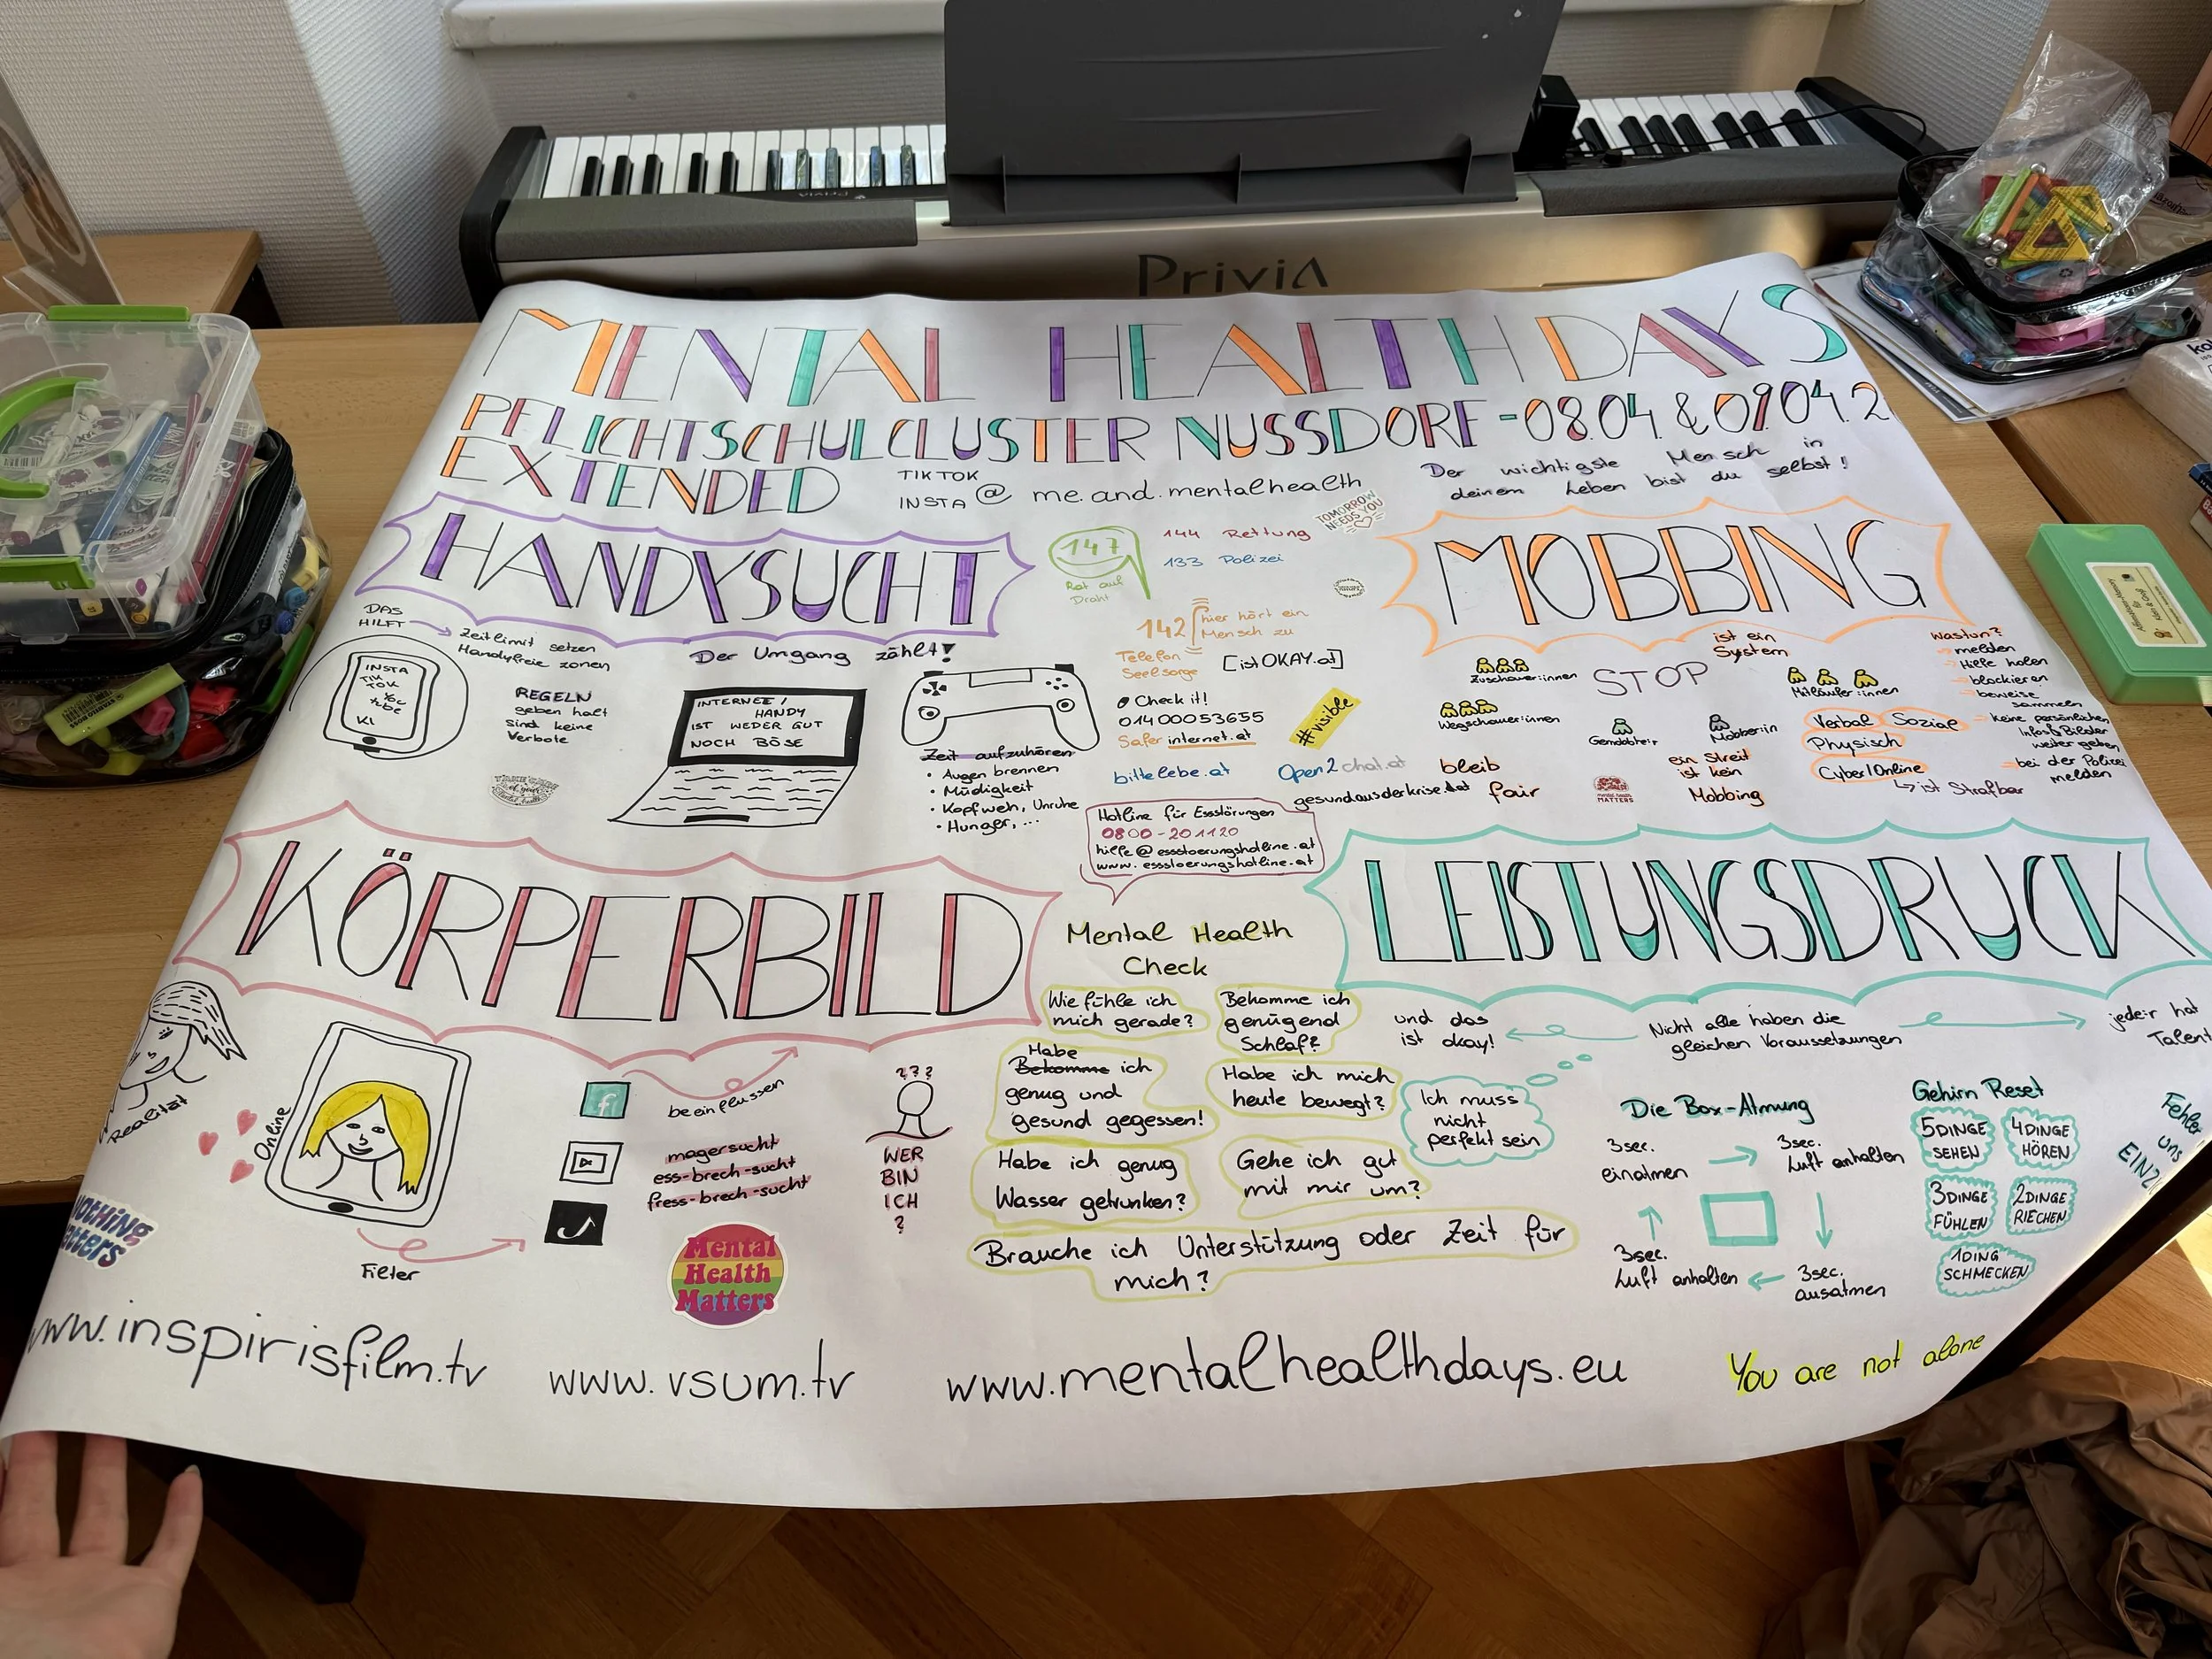 PriviA
MENTAL HEALTH DAYS
PFLICHTSCHULCLUSTER NUSSDORF - 08.04. & 09.04.2
EXTENDED
TIKTOK
INSTA @ me.and.mentalhealth
Der wichtigste Mensch in
deinem Leben bist du selbst!
HANDYSUCHT
DAS
HILFT
Zeitlimit setzen
Handyfreie zonen
INSTA
TIK
TOK
KI
REGELN
geben halt
Sind keine
Verbote
Der Umgang zählt!
INTERNET /
HANDY
IST WEDER GUT
NOCH BÖSE
Zeit aufzuhören
• Augen brennen
• Müdigkeit
• Kopfweh, Unruhe
• Hunger, ...
147
Rat auf
Draht
144 Rettung
133 Polizei
TOMORROW
NEEDS YOU
142
hier hört ein
Mensch zu
Telefon
Seelsorge
[istOKAY.at]
Check it!
01400053655
Saferinternet.at
#visible
bittelebe.at
Open2chat.at
gesundausderkrise.at
Hotline für Essstörungen
0800-201120
hilfe@essstoerungshotline.at
www.essstoerungshotline.at
MOBBING
ist ein
System
STOP
Zuschauer:innen
Wegschauer:innen
Mitläufer:innen
Gemobbte:r
Mobber:in
bleib
fair
mental health
MATTERS
ein Streit
ist kein
Mobbing
Verbal
Sozial
Physisch
Cyber/Online
ist Strafbar
was tun?
melden
Hilfe holen
blockieren
beweise
sammeln
keine persönlichen
Infos & Bilder
weiter geben
bei der Polizei
melden
KÖRPERBILD
Realität
Online
Filter
f
beeinflussen
magersucht
ess-brech-sucht
fress-brech-sucht
???
WER
BIN
ICH
?
Mental
Health
Matters
Mental Health
Check
Wie fühle ich
mich gerade?
Bekomme ich
genügend
Schlaf?
Habe
Bekomme ich
genug und
gesund gegessen!
Habe ich mich
heute bewegt?
Habe ich genug
Wasser getrunken?
Gehe ich gut
mit mir um?
Brauche ich Unterstützung oder Zeit für
mich?
LEISTUNGSDRUCK
und das
ist okay!
Nicht alle haben die
gleichen Voraussetzungen
jede:r hat
Talent
Ich muss
nicht
perfekt sein
Die Box-Atmung
3sec.
einatmen
3sec.
Luft anhalten
3sec.
ausatmen
3sec.
Luft anhalten
Gehirn Reset
5 DINGE
SEHEN
4 DINGE
HÖREN
3 DINGE
FÜHLEN
2 DINGE
RIECHEN
1 DING
SCHMECKEN
Fehler
uns
www.inspirisfilm.tv
www.vsum.tv
www.mentalhealthdays.eu
You are not alone